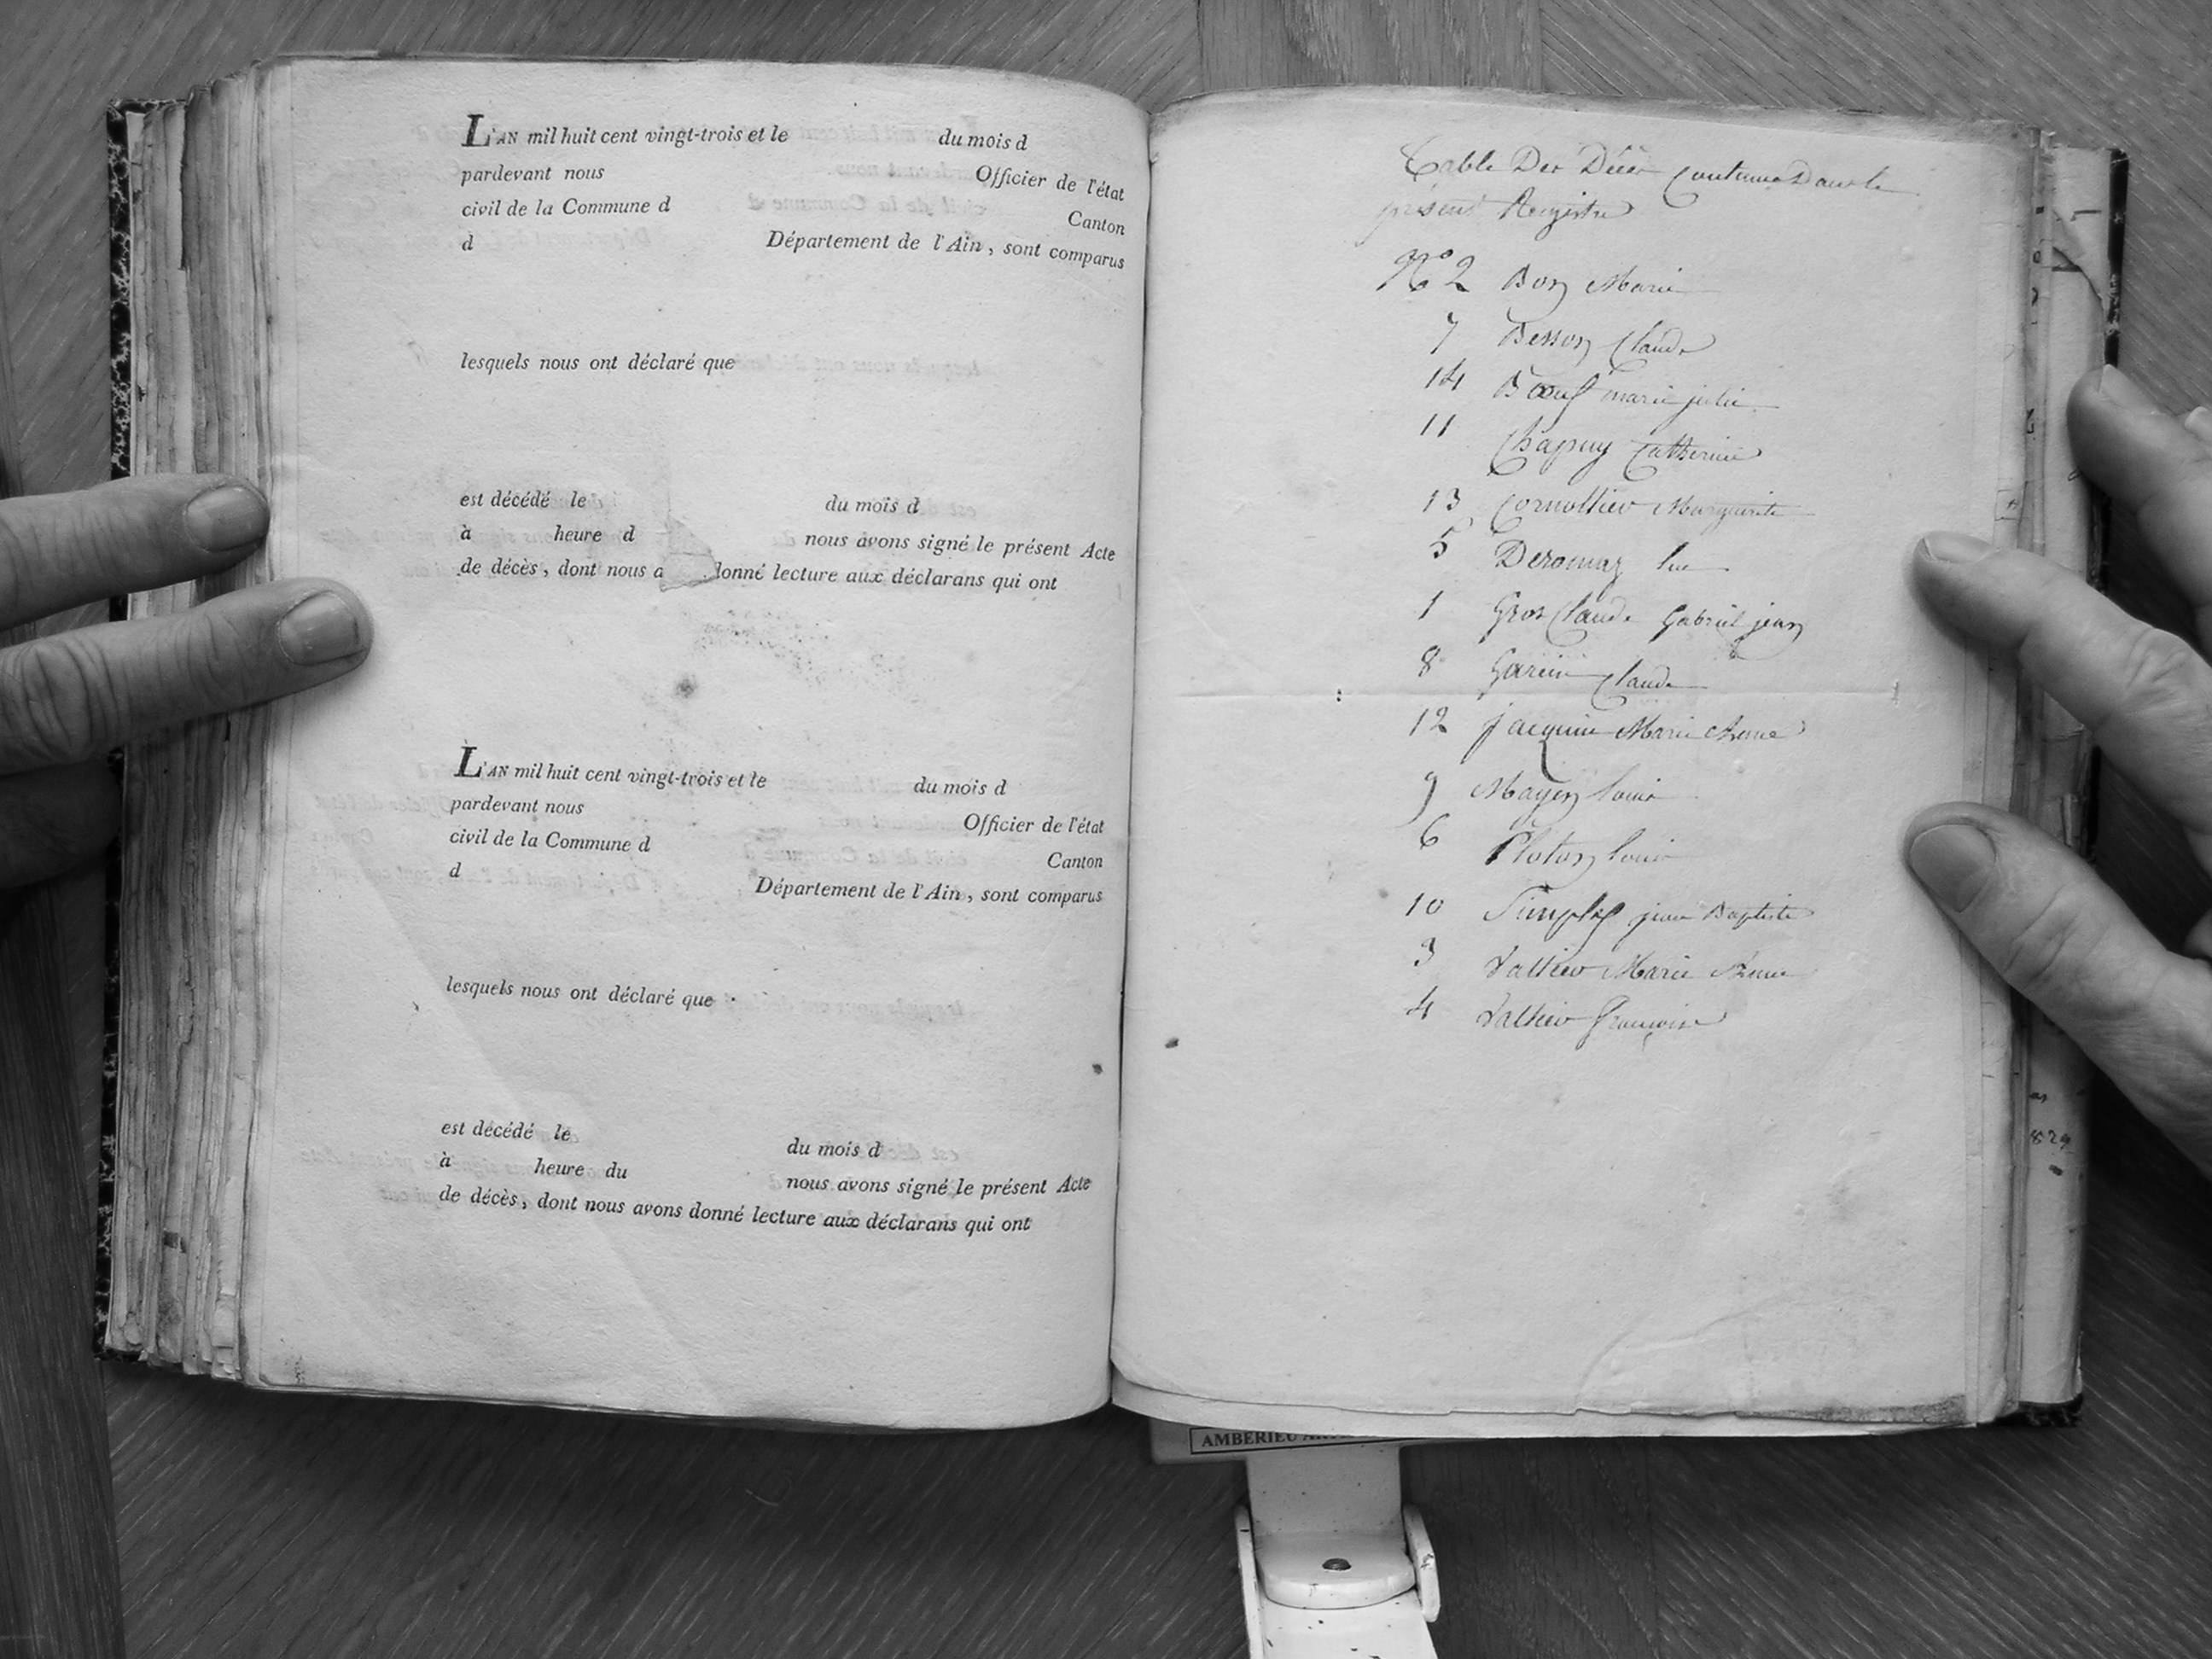 L'AN mil huit cent vingt-trois et le du mois d
pardevant nous Officier de l'état
civil de la Commune d Canton
d Département de l'Ain, sont comparus
lesquels nous ont déclaré que
est décédé le du mois d
à heure d nous avons signé le présent Acte
de décès, dont nous a donné lecture aux déclarans qui ont
L'AN mil huit cent vingt-trois et le du mois d
pardevant nous Officier de l'état
civil de la Commune d Canton
d Département de l'Ain, sont comparus
lesquels nous ont déclaré que
est décédé le du mois d
à heure du nous avons signé le présent Acte
de décès, dont nous avons donné lecture aux déclarans qui ont
Table Des Décès contenus Dans le
présent Registre
N° 2 Bon Marie
7 Besson Claude
14 Bœuf marie julie
11 Chapuy Catherine
13 Cornottier Marguerite
5 Deromaz
1 GrosClaude Gabriel jean
8 Garin Claude
12 jacquin Marie Anne
9 Mayen Louis
6 Ploton Louis
10 jean Baptiste
3 Vallier Marie Anne
4 Vallier Françoise
AMBERIEU